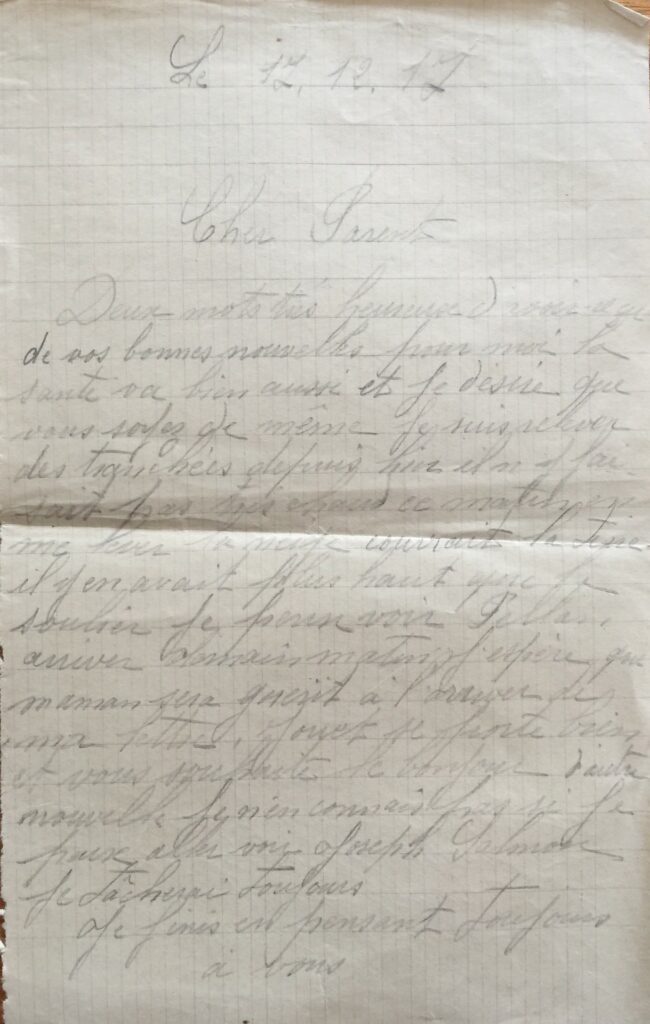 Le 17.12.17
Cher Parent
Deux mots très heureux d
de vos bonnes nouvelles pour moi la
santé va bien aussi et je désire que
vous soyez de même je suis relever
des tranchées depuis hier il n y fai
sait pas très chaud ce matin en
me la neige couvrait la terre
il y en avait plus haut que le
soulier je pense voir Pellan
arriver demain matin j'espère que
maman sera guerit à l'arriver de
ma lettre, Jouet se porte bien
et vous souhaite le bonjour d'autre
nouvelle je n'en connais pas si je
peux aller voir Joseph Salmon
je tâcherai toujours
Je finis en pensant toujours
à vous